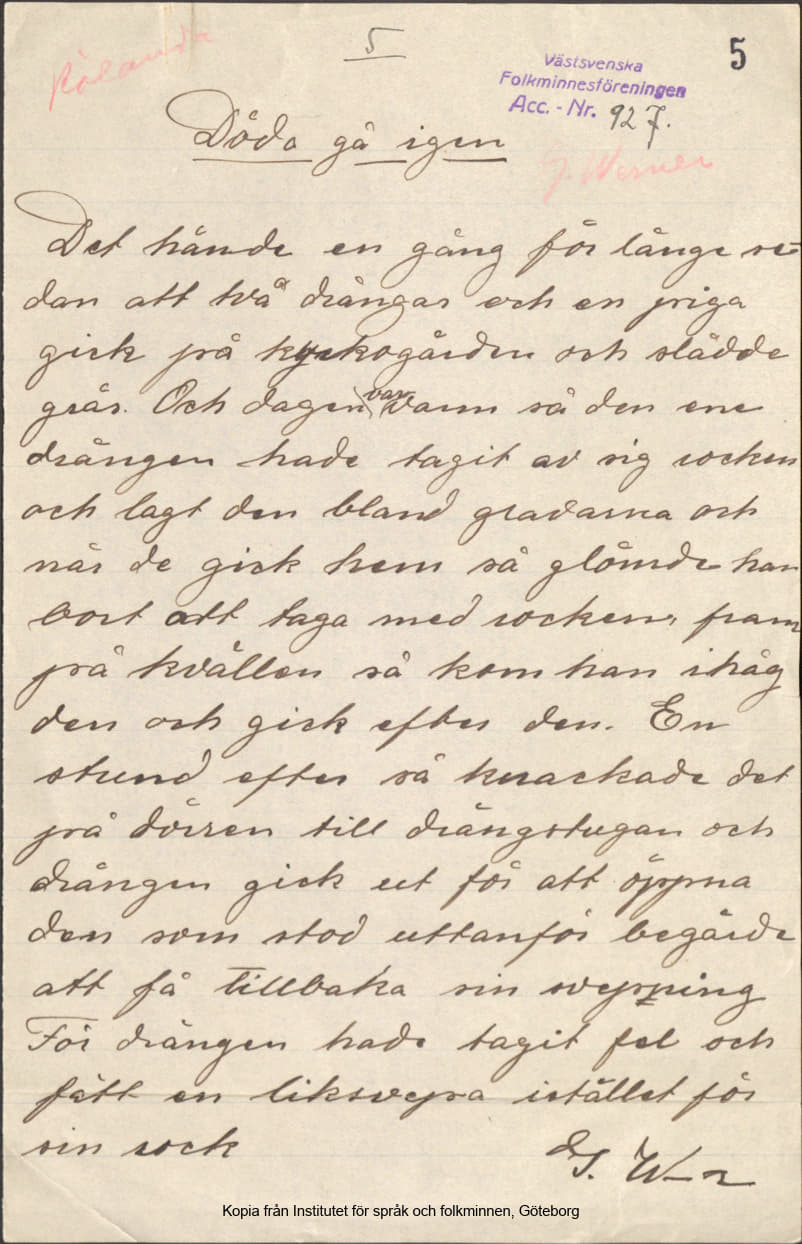 Rölanda
5
5
Västsvenska
Folkminnesföreningen
Acc. - Nr. 927.
Döda gå igen
G. Werner
Det hände en gång för länge se-
dan att två drängar och en piga
gick på kyrkogården och slådde
gräs. Och dagen var varm så den ene
drängen hade tagit av sig rocken
och lagt den bland gravarna och
när de gick hem så glömde han
bort att taga med rocken, fram
på kvällen så kom han ihåg
den och gick efter den. En
stund efter så knackade det
på dörren till drängstugan och
drängen gick ut för att öppna
den som stod uttanför begärde
att få tillbaka sin svepning
För drängen hade tagit fel och
fått en liksvepa istället för
sin rock
G. W-r
Kopia från Institutet för språk och folkminnen, Göteborg